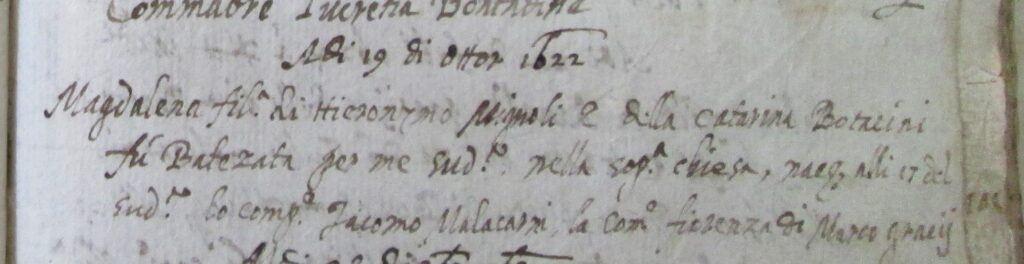 Commadre Lucretia
Adi 19 di Ottor 1622
Magdalena fil.ª di Hieronymo Mignoli e della Catarina Botacini
fú Batezata per me sud.to nella sop.ª chiesa, nacq, alli 17 del
sud.to lo comp.e Jacomo Malacarni, la com.e fiorenza di Marco gracij